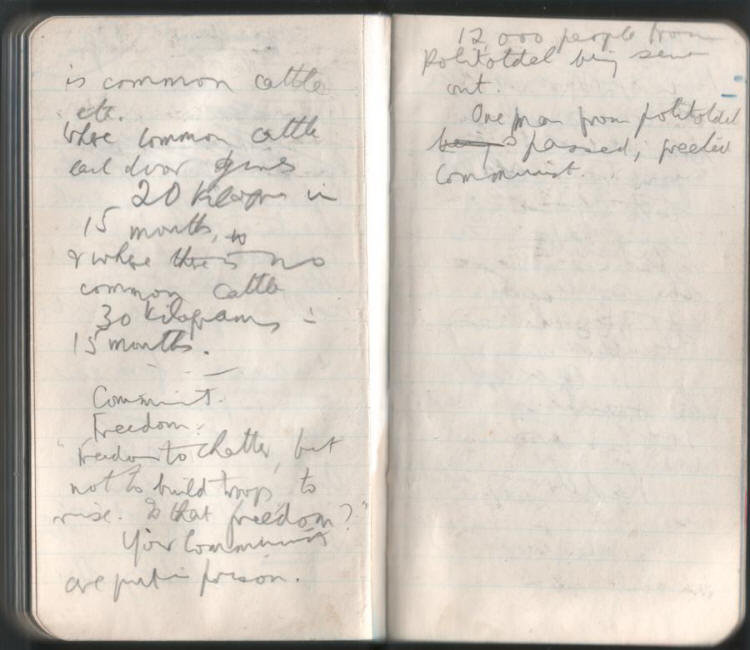 is common cattle
etc.
Where common cattle
each dvor gives
20 kilograms in
15 months, to
& where there is no
common cattle
30 kilograms in
15 months.
Communist.
Freedom:
"Freedom to chatter, but
not to build troops to
rise. Is that freedom?"
Your Communists
are put in prison.
12,000 people from
Politotdel being sent
out.
One man from politotdel
being passed, greeted
Communist.